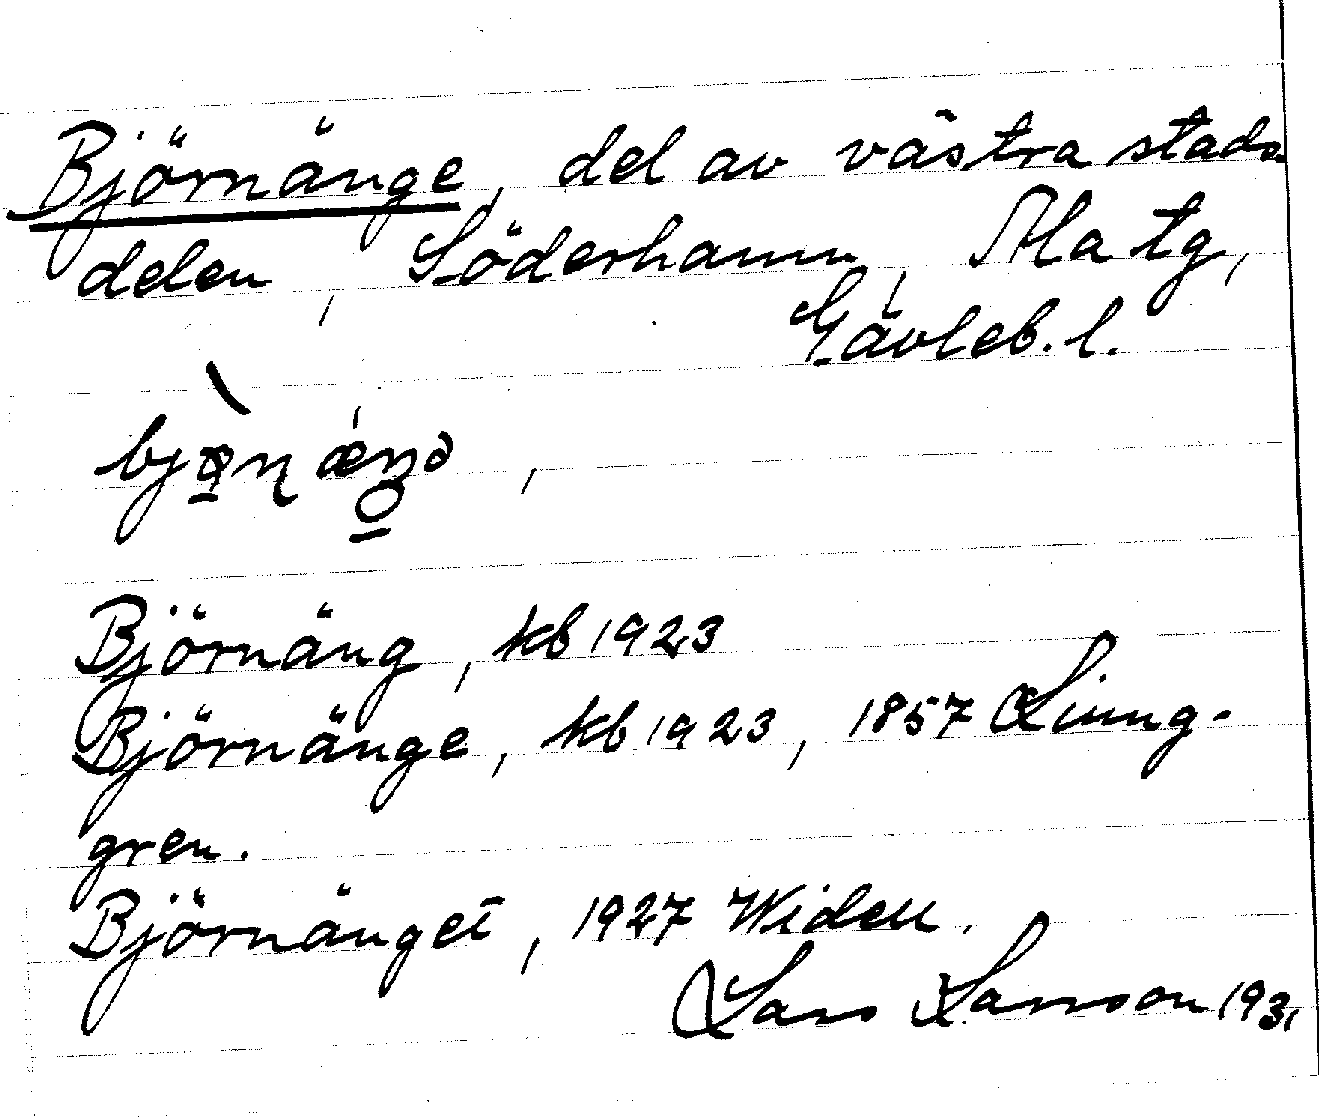 Björnänge, del av västra stads
delen, Söderhamn, Ala tg,
Gävleb. l.
Björnäng, kb 1923
Björnänge, kb 1923, 1857 Ljung-
gren.
Björnänget, 1927 Widell.
Lars Larsson 1931